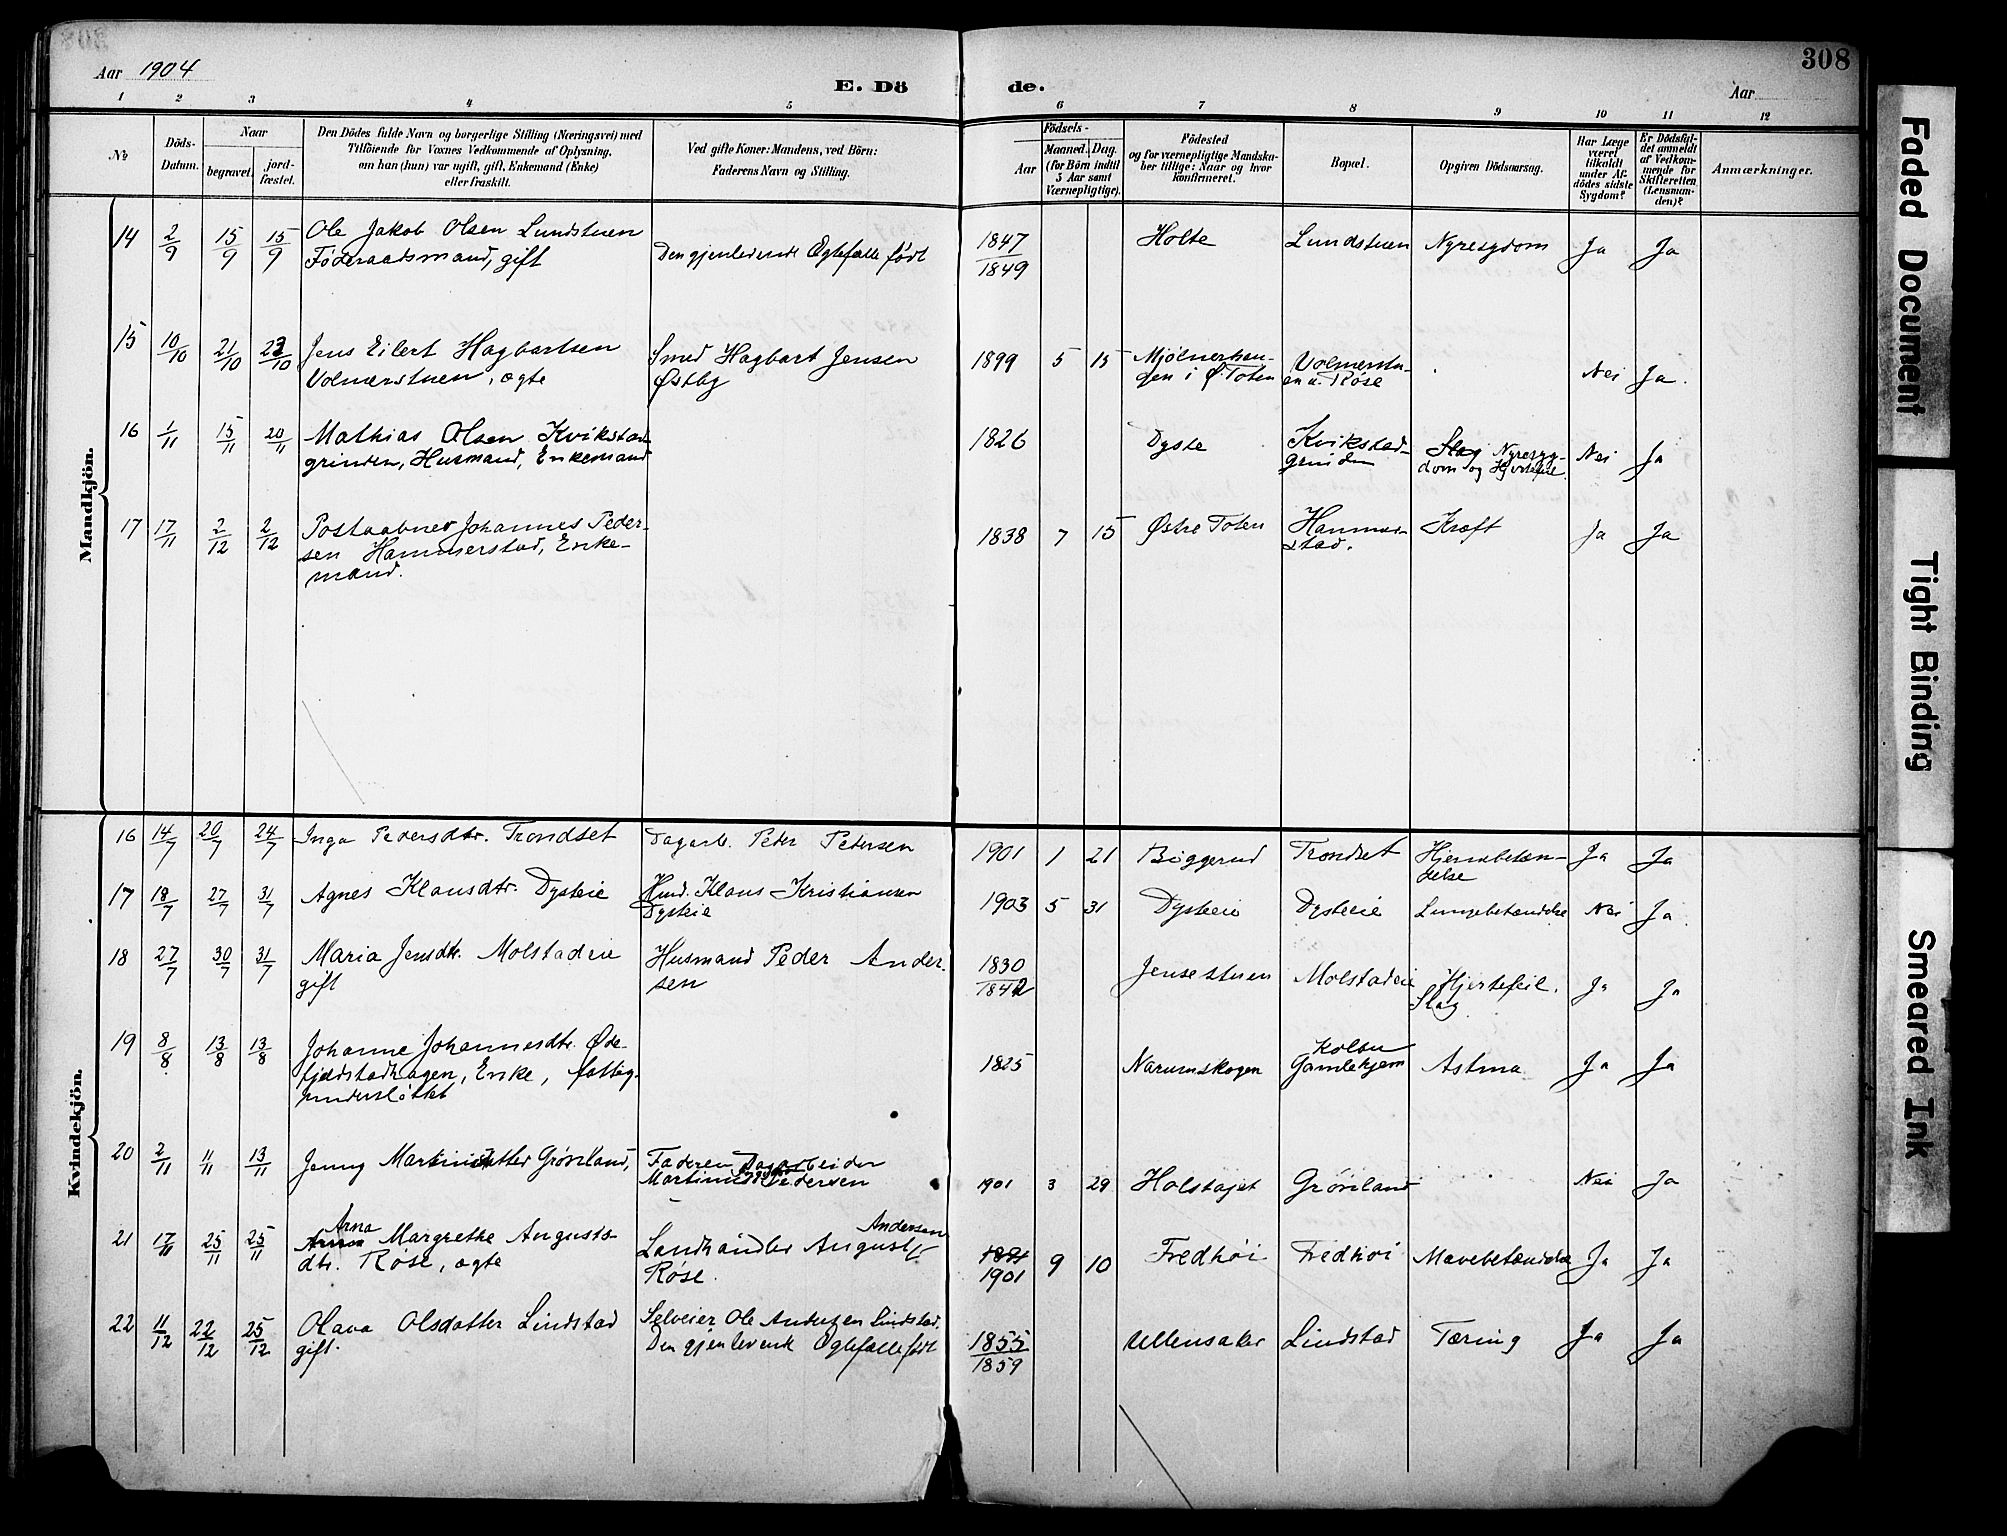 308
Aar 1904
E. Dö de.
Aar
1 2 3 4 5 6 7 8 9 10 11 12
№
Döds-Datum.
Naar
begravet.
jord-fæstet.
Den Dödes fulde Navn og borgerlige Stilling (Næringsvei) med
Tilföiende for Voxnes Vedkommende af Oplysning,
om han (hun) var ugift, gift, Enkemand (Enke)
eller fraskilt.
Ved gifte Koner: Mandens, ved Börn:
Faderens Navn og Stilling.
Födsels-
Aar
Maaned. Dag.
(for Börn indtil
5 Aar samt
Værnepligtige).
Födested
og for værnepligtige Mandska-
ber tillige: Naar og hvor
konfirmeret.
Bopæl.
Opgiven Dödsaarsag.
Har Læge
været
tilkaldt
under Af-
dödes sidste
Sygdom?
Er Dödsfal-
det anmeldt
af Vedkom-
mende for
Skifteretten
(Lensman-
den)?
Anmærkninger.
Mandkjön.
14 2/9 15/9 15/9 Ole Jakob Olsen Lundstuen
Föderaadsmand, gift
Den gjenlevende Ægtefælle født
1847
1849
Holte Lundstuen Nyresygdom Ja Ja
15 10/10 21/10 23/10 Jens Eilert Hagbartsen
Volmerstuen, ægte
Smed Hagbart Jensen
Østby
1899 5 15
Mjølnerhau-
gen i Ø. Toten
Volmerstu-
en u. Røse
Nei Ja.
16 1/11 15/11 20/11 Mathias Olsen Kvikstad-
grinden, Husmand, Enkemand
1826 Dyste
Kvikstad-
grinden
Slag Nyresyg-
dom og Hjertefeil
Nei Ja
17 17/11 2/12 2/12 Postaabner Johannes Peder-
sen Hammerstad, Enke-
mand.
1838 7 15 Østre Toten
Hammer-
stad.
Kræft Ja Ja
Kvindekjön.
16 14/7 20/7 24/7 Inga Pedersdtr. Trondset
Dagarb. Peter Petersen
1901 1 21 Bøggerud Trondset
Hjernebetæn-
delse
Ja Ja
17 18/7 27/7 31/7 Agnes Klausdtr. Dysteie
Hmd. Klaus Kristiansen
Dysteie
1903 5 31 Dysteie Dysteie Lungebetændelse Nei Ja
18 27/7 30/7 31/7 Maria Jensdtr. Molstadeie
gift
Husmand Peder Ander-
sen
1830
1842
Jensestuen Molstadeie
Hjertefeil.
Slag
Ja Ja
19 8/8 13/8 13/8 Johanne Johannesdtr. Øde-
fjeldstadhagen, Enke, fattig-
understøttet
1825 Narumskogen
Kolbu
Gamlehjem
Astma Ja Ja
20 2/11 11/11 13/11 Jenny Martinusdatter Grönland,
Faderen Dagarbeider
Martinus Pedersen
1901 3 29 Holstajet Grönland Nei Ja
21 17/11 25/11 25/11 Arna
Margrethe Augusts-
dtr. Røse, ægte
Andersen
Landhandler August
Røse.
1901 9 10 Fredhöi Fredhöi Mavebetændelse Ja Ja
22 11/12 22/12 25/12 Olava Olsdatter Lindstad
gift.
Selveier Ole Andersen Lindstad.
Den gjenlevende Ægtefælle født
1855
1859
Ullensaker Lindstad Tæring Ja Ja
Faded Document
Tight Binding
Smeared Ink